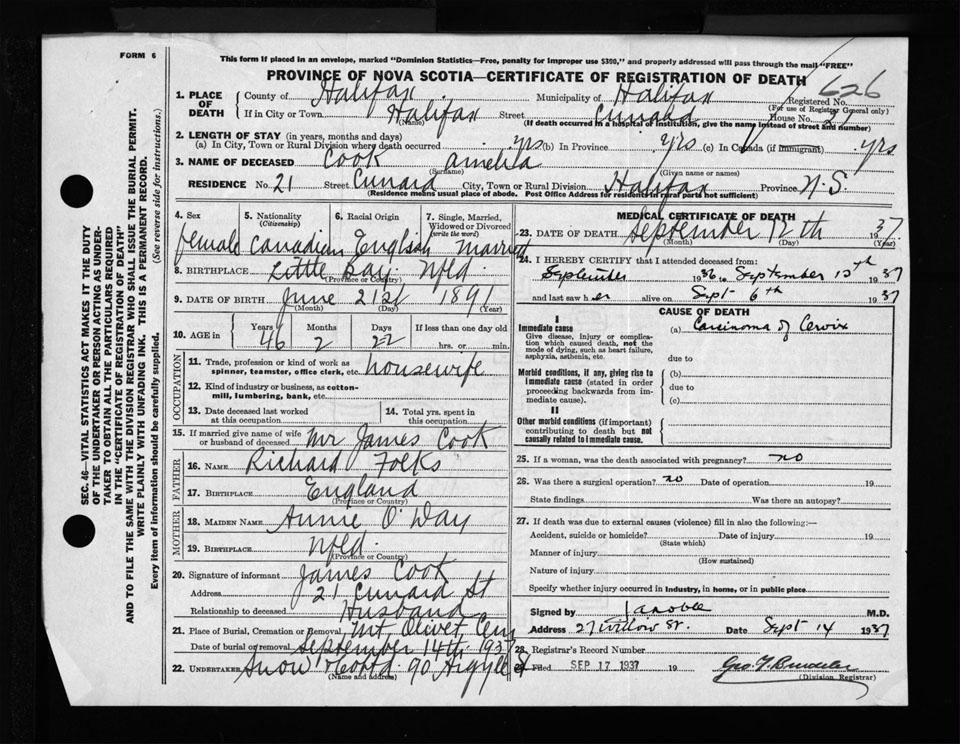 FORM 6
This form if placed in an envelope, marked "Dominion Statistics—Free, penalty for improper use $300," and properly addressed will pass through the mail "FREE"
PROVINCE OF NOVA SCOTIA—CERTIFICATE OF REGISTRATION OF DEATH
626
1. PLACE OF DEATH
County of Halifax Municipality of Halifax Registered No.
(For use of Registrar General only)
If in City or Town Halifax Street Cunard House No. 21
(Name) (If death occurred in a hospital or institution, give the name instead of street and number)
2. LENGTH OF STAY (in years, months and days)
(a) In City, Town or Rural Division where death occurred yrs (b) In Province yrs (c) In Canada (if immigrant) yrs
3. NAME OF DECEASED Cook Amelia
(Surname) (Given name or names)
RESIDENCE No. 21 Street Cunard City, Town or Rural Division Halifax Province N.S.
(Residence means usual place of abode. Post Office Address for residents in rural parts not sufficient)
4. Sex 5. Nationality (Citizenship) 6. Racial Origin 7. Single, Married, Widowed or Divorced (write the word)
female Canadian English married
8. BIRTHPLACE Little Bay Nfld.
(Province or Country)
9. DATE OF BIRTH June 21st 1891
(Month) (Day) (Year)
10. AGE in Years Months Days If less than one day old
46 2 22 hrs. or min.
OCCUPATION
11. Trade, profession or kind of work as spinner, teamster, office clerk, etc. housewife
12. Kind of industry or business, as cotton-mill, lumbering, bank, etc.
13. Date deceased last worked at this occupation
14. Total yrs. spent in this occupation
15. If married give name of wife or husband of deceased Mr James Cook
FATHER
16. NAME Richard Folks
17. BIRTHPLACE England
(Province or Country)
MOTHER
18. MAIDEN NAME Annie O'Day
19. BIRTHPLACE Nfld.
(Province or Country)
20. Signature of informant James Cook
Address 21 Cunard St
Relationship to deceased Husband
21. Place of Burial, Cremation or Removal Mt. Olivet Cem
Date of burial or removal September 14th 1937
22. UNDERTAKER Snow & Co Ltd. 90 Argyle St
(Name and address)
MEDICAL CERTIFICATE OF DEATH
23. DATE OF DEATH September 12th 1937
(Month) (Day) (Year)
24. I HEREBY CERTIFY that I attended deceased from:
September 1936 to September 12th 1937
and last saw her alive on Sept 6th 1937
CAUSE OF DEATH
I
Immediate cause
Give disease, injury or complication which caused death, not the mode of dying, such as heart failure, asphyxia, asthenia, etc.
(a) Carcinoma of Cervix
due to
Morbid conditions, if any, giving rise to immediate cause (stated in order proceeding backwards from immediate cause).
(b)
due to
(c)
II
Other morbid conditions (if important) contributing to death but not causally related to immediate cause.
25. If a woman, was the death associated with pregnancy? no
26. Was there a surgical operation? no Date of operation 19
State findings Was there an autopsy?
27. If death was due to external causes (violence) fill in also the following:—
Accident, suicide or homicide? Date of injury 19
(State which)
Manner of injury
(How sustained)
Nature of injury
Specify whether injury occurred in industry, in home, or in public place
Signed by M.D.
Address 27 Willow St. Date Sept 14 1937
28. Registrar's Record Number
29. Filed SEP 17 1937 19
(Division Registrar)
SEC. 46—VITAL STATISTICS ACT MAKES IT THE DUTY
OF THE UNDERTAKER OR PERSON ACTING AS UNDER-
TAKER TO OBTAIN ALL THE PARTICULARS REQUIRED
IN THE "CERTIFICATE OF REGISTRATION OF DEATH"
AND TO FILE THE SAME WITH THE DIVISION REGISTRAR WHO SHALL ISSUE THE BURIAL PERMIT.
WRITE PLAINLY WITH UNFADING INK. THIS IS A PERMANENT RECORD.
Every item of information should be carefully supplied. (See reverse side for instructions.)